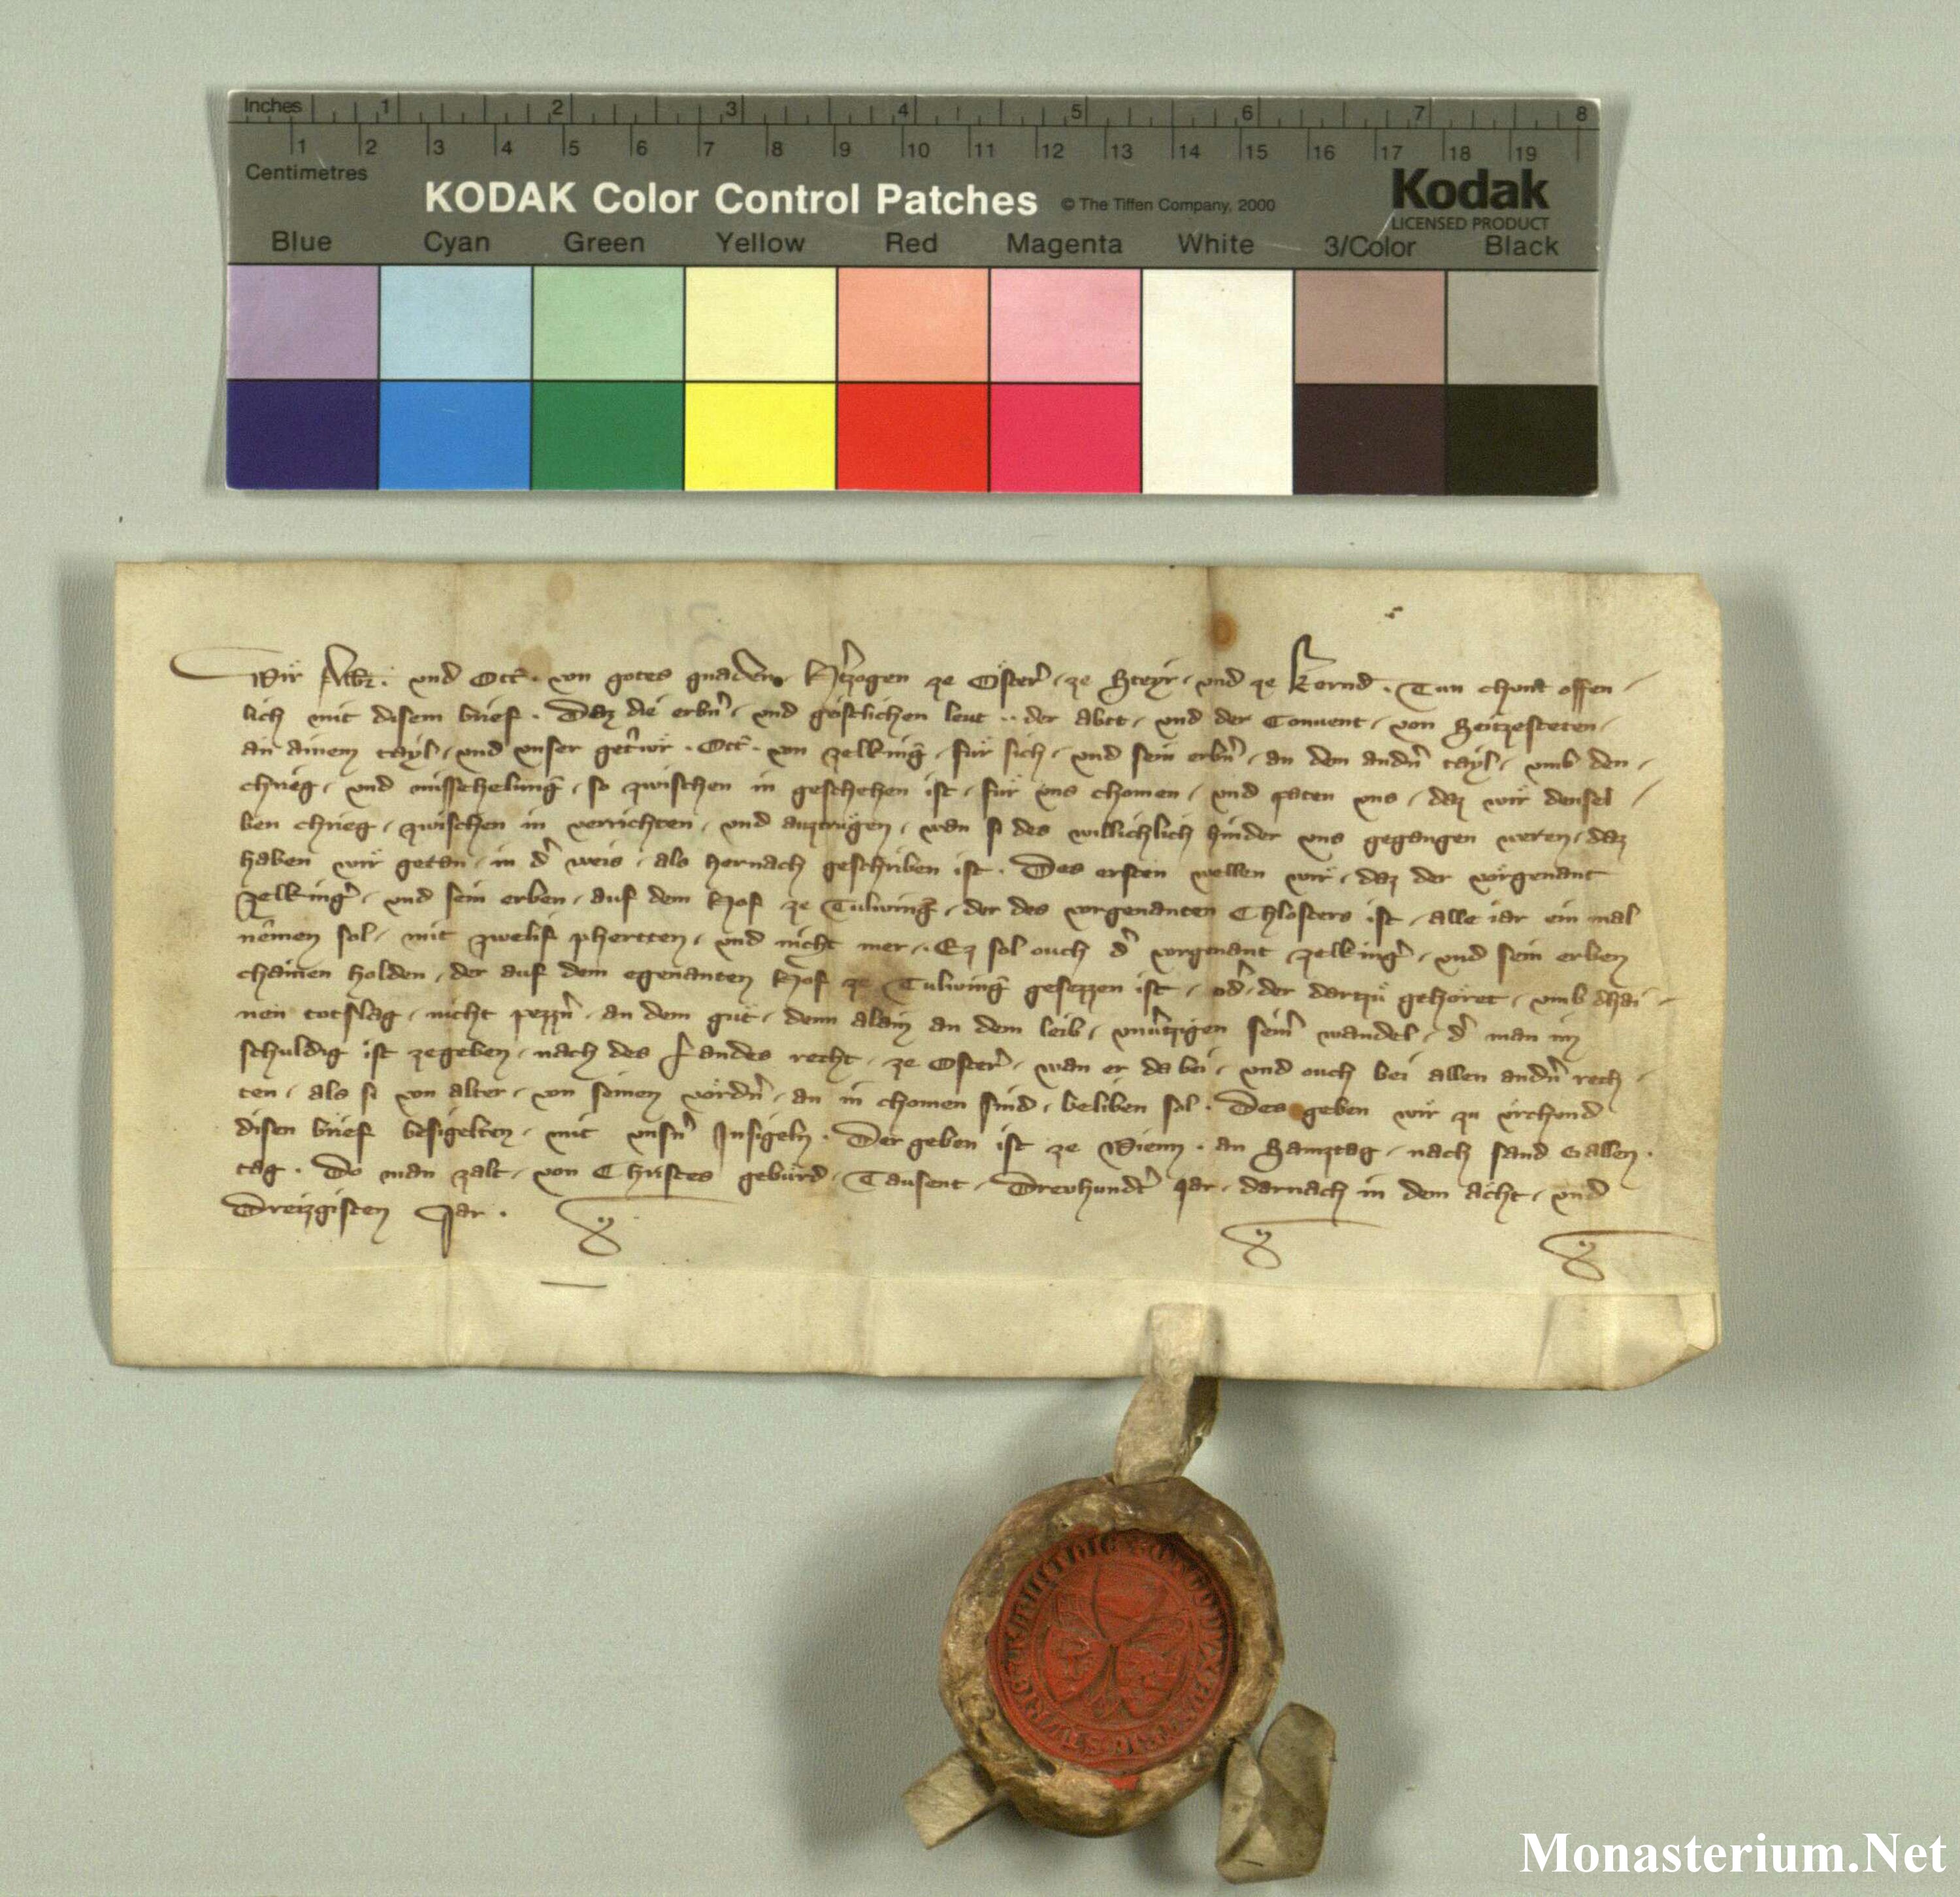 Inches 1 2 3 4 5 6 7 8
1 2 3 4 5 6 7 8 9 10 11 12 13 14 15 16 17 18 19
Centimetres
KODAK Color Control Patches © The Tiffen Company, 2000 Kodak
LICENSED PRODUCT
Blue Cyan Green Yellow Red Magenta White 3/Color Black
Wir Albr. und Ott. von gotes gnaden Htzogen ze Öster, ze Steyr, und ze Kernd. Tun chunt offen
lich mit disem brief. Daz die erbn, und geistlichen leut .. der abtt, und der Conuent, von Seitzesteten,
an ainem tayl, und unser getrwr. Ott. von zelking, für sich, und sein erbn, an dem andn tayl, umb den,
chrieg, und misschelung, so zwischen in geschehen ist, für uns chomen, und paten uns, daz wir densel
ben chrieg, zwischen in verrichten, und auztrügen, wan si des willichlich hinder uns gegangen weren, daz
haben wir getan, in d weis, als hernach geschriben ist. Des ersten wellen wir, daz der vorgenant
zelking, und sein erben, auf dem Hof ze Tulwing, der des vorgenanten Chlosters ist, alle iar ein mal
nemen sol, mit zwelif phertten, und nicht mer. Ez sol ouch d vorgenant zelking, und sein erben
chainen holden, der auf dem egenanten Hof ze Tulwing gesezzen ist, od, der dartzu gehöret, umb dhai
nen totslag, nicht pezzn, an dem gut, denn alain an dem leib, unutzigen seim wandel, d man im
schuldig ist zegeben, nach des Landes recht, ze Oster, wan er da bei, und ouch bei allen andn rech
ten, als si von alter, von seinen vordn, an in chomen sind, beliben sol. Des geben wir zu urchund
disen brief besigelten, mit unsn Insigeln. Der geben ist ze Wienn. an Samztag, nach sand Gallen.
tag. Do man zalt, von Christes gebürd, Tausent, Dreuhundt Jar, darnach in dem acht, und
Dreizgisten Jar.
Monasterium.Net